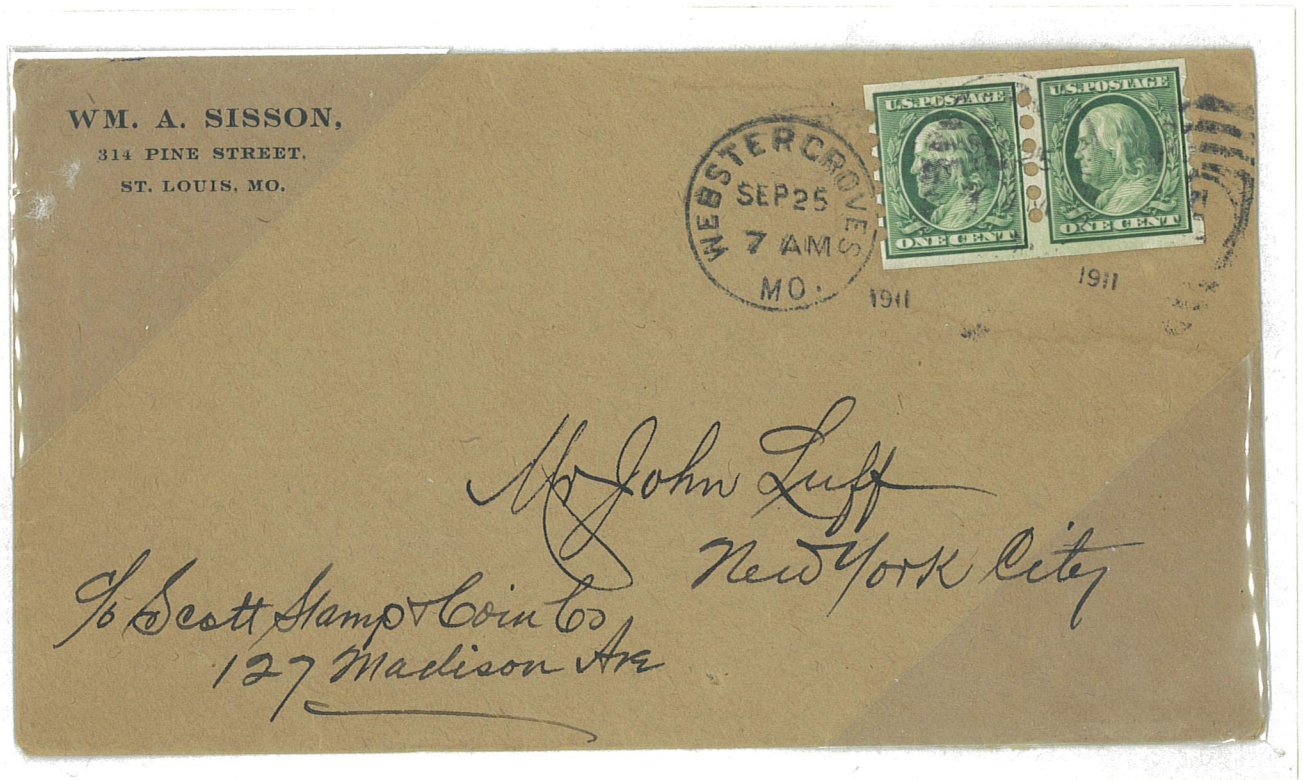 WM. A. SISSON,
314 PINE STREET,
ST. LOUIS, MO.
WEBSTER GROVES
SEP 25
7 AM
MO.
1911
1911
U.S. POSTAGE
ONE CENT
U.S. POSTAGE
ONE CENT
Mr John Luff
New York City
c/o Scott Stamp & Coin Co
127 Madison Ave